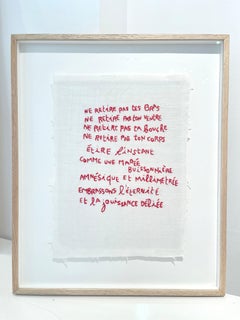 NE RETIRE PAS TES BRAS
NE RETIRE PAS TON VENTRE
NE RETIRE PAS TA BOUCHE
NE RETIRE PAS TON CORPS
ÉTIRE L'INSTANT
COMME UNE MARÉE
BUISSONNIÈRE
AMNÉSIQUE ET MILLIMÉTRÉE
EMBRASSONS L'ÉTERNITÉ
ET LA JOUISSANCE DÉLIÉE